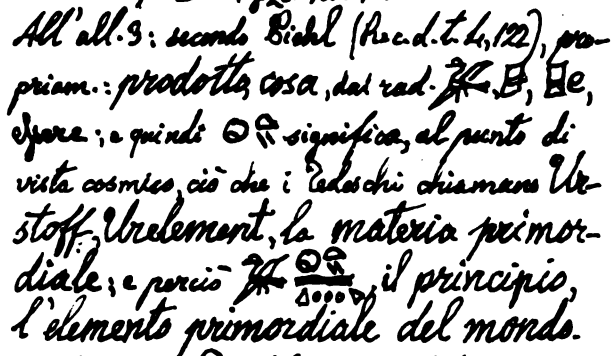 All'all. 3: secondo Biehl (Rec. d. t. 4, 122), pro-
priam.: prodotto, cosa, dal rad.
essere; e quindi significa, al punto di
vista cosmico, ciò che i Tedeschi chiamano Ur-
stoff, Urelement, la materia primor-
diale; e perciò il principio,
l'elemento primordiale del mondo.